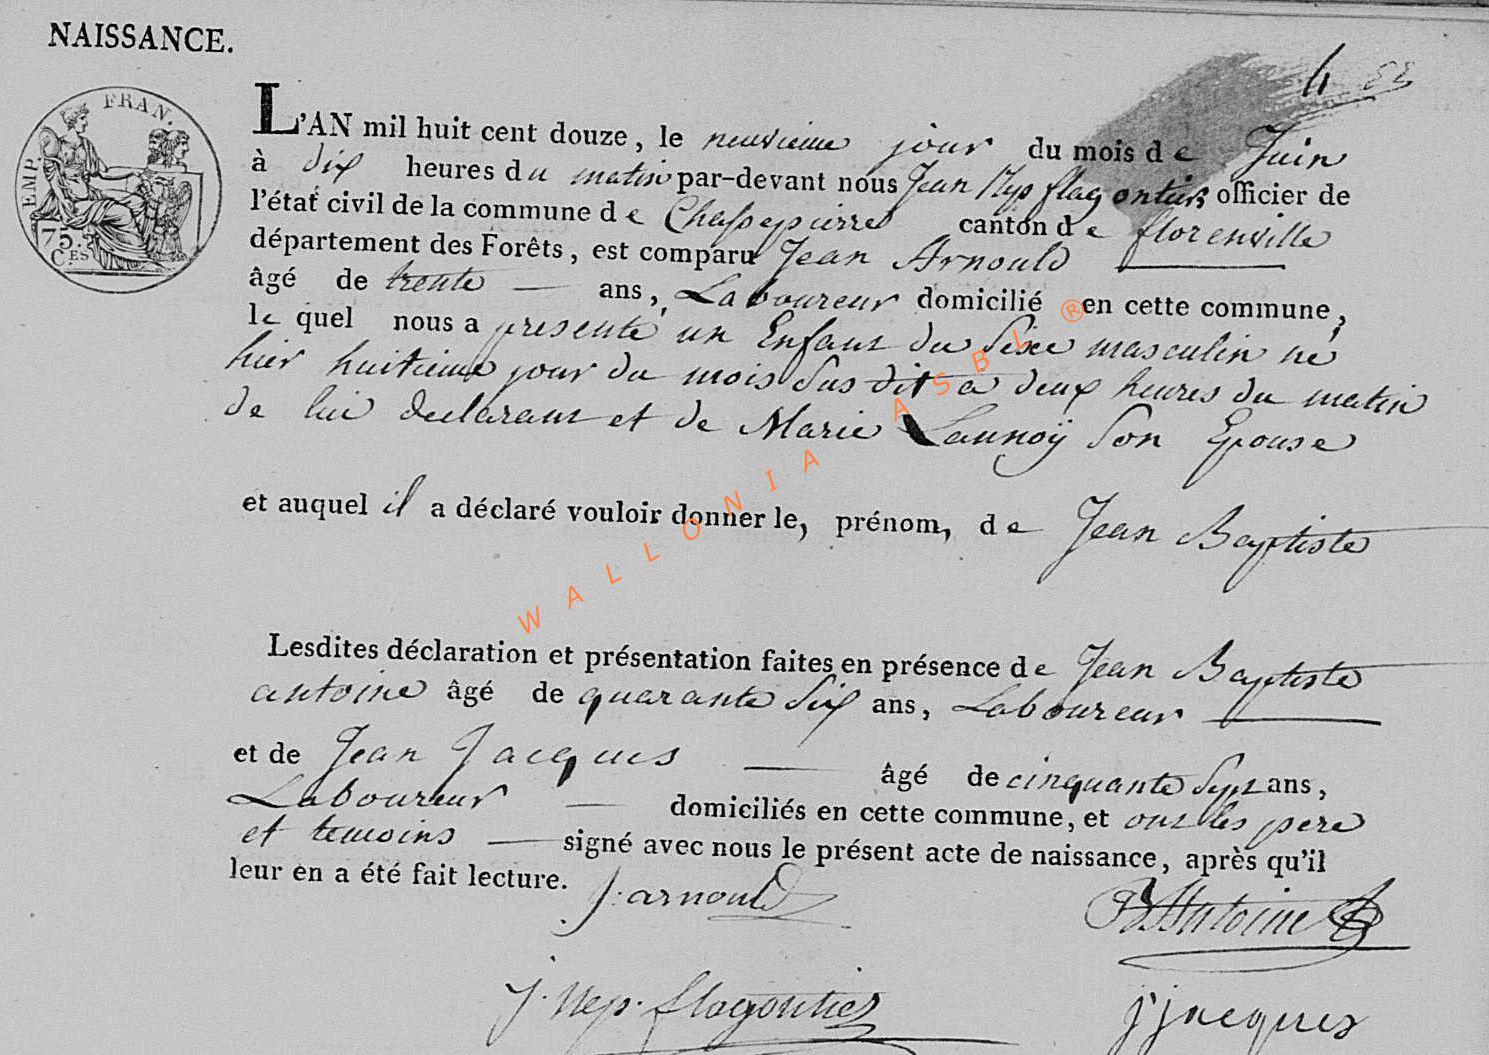 NAISSANCE.
4 52
EMP. FRAN.
75.
CES
L'AN mil huit cent douze, le neuvieme jour du mois de Juin
à dix heures du matin par-devant nous Jean Nep flagontier officier de
l'état civil de la commune de Chassepierre canton de florenville
département des Forêts, est comparu Jean Arnould
âgé de trente ans, Laboureur domicilié en cette commune,
le quel nous a presenté un Enfant du Sexe masculin né
hier huitieme jour du mois Sus dit a deux heures du matin
de lui declarant et de Marie Launoÿ Son Epouse
et auquel il a déclaré vouloir donner le, prénom, de Jean Baptiste
Lesdites déclaration et présentation faites en présence de Jean Baptiste
antoine âgé de quarante Six ans, Laboureur
et de Jean Jacques âgé de cinquante Sept ans,
Laboureur domiciliés en cette commune, et ont les pere
et temoins signé avec nous le présent acte de naissance, après qu'il
leur en a été fait lecture.
J: arnould
JBAntoine
J. Nep. flagontier
j'jacques
WALLONIA ASBL ®